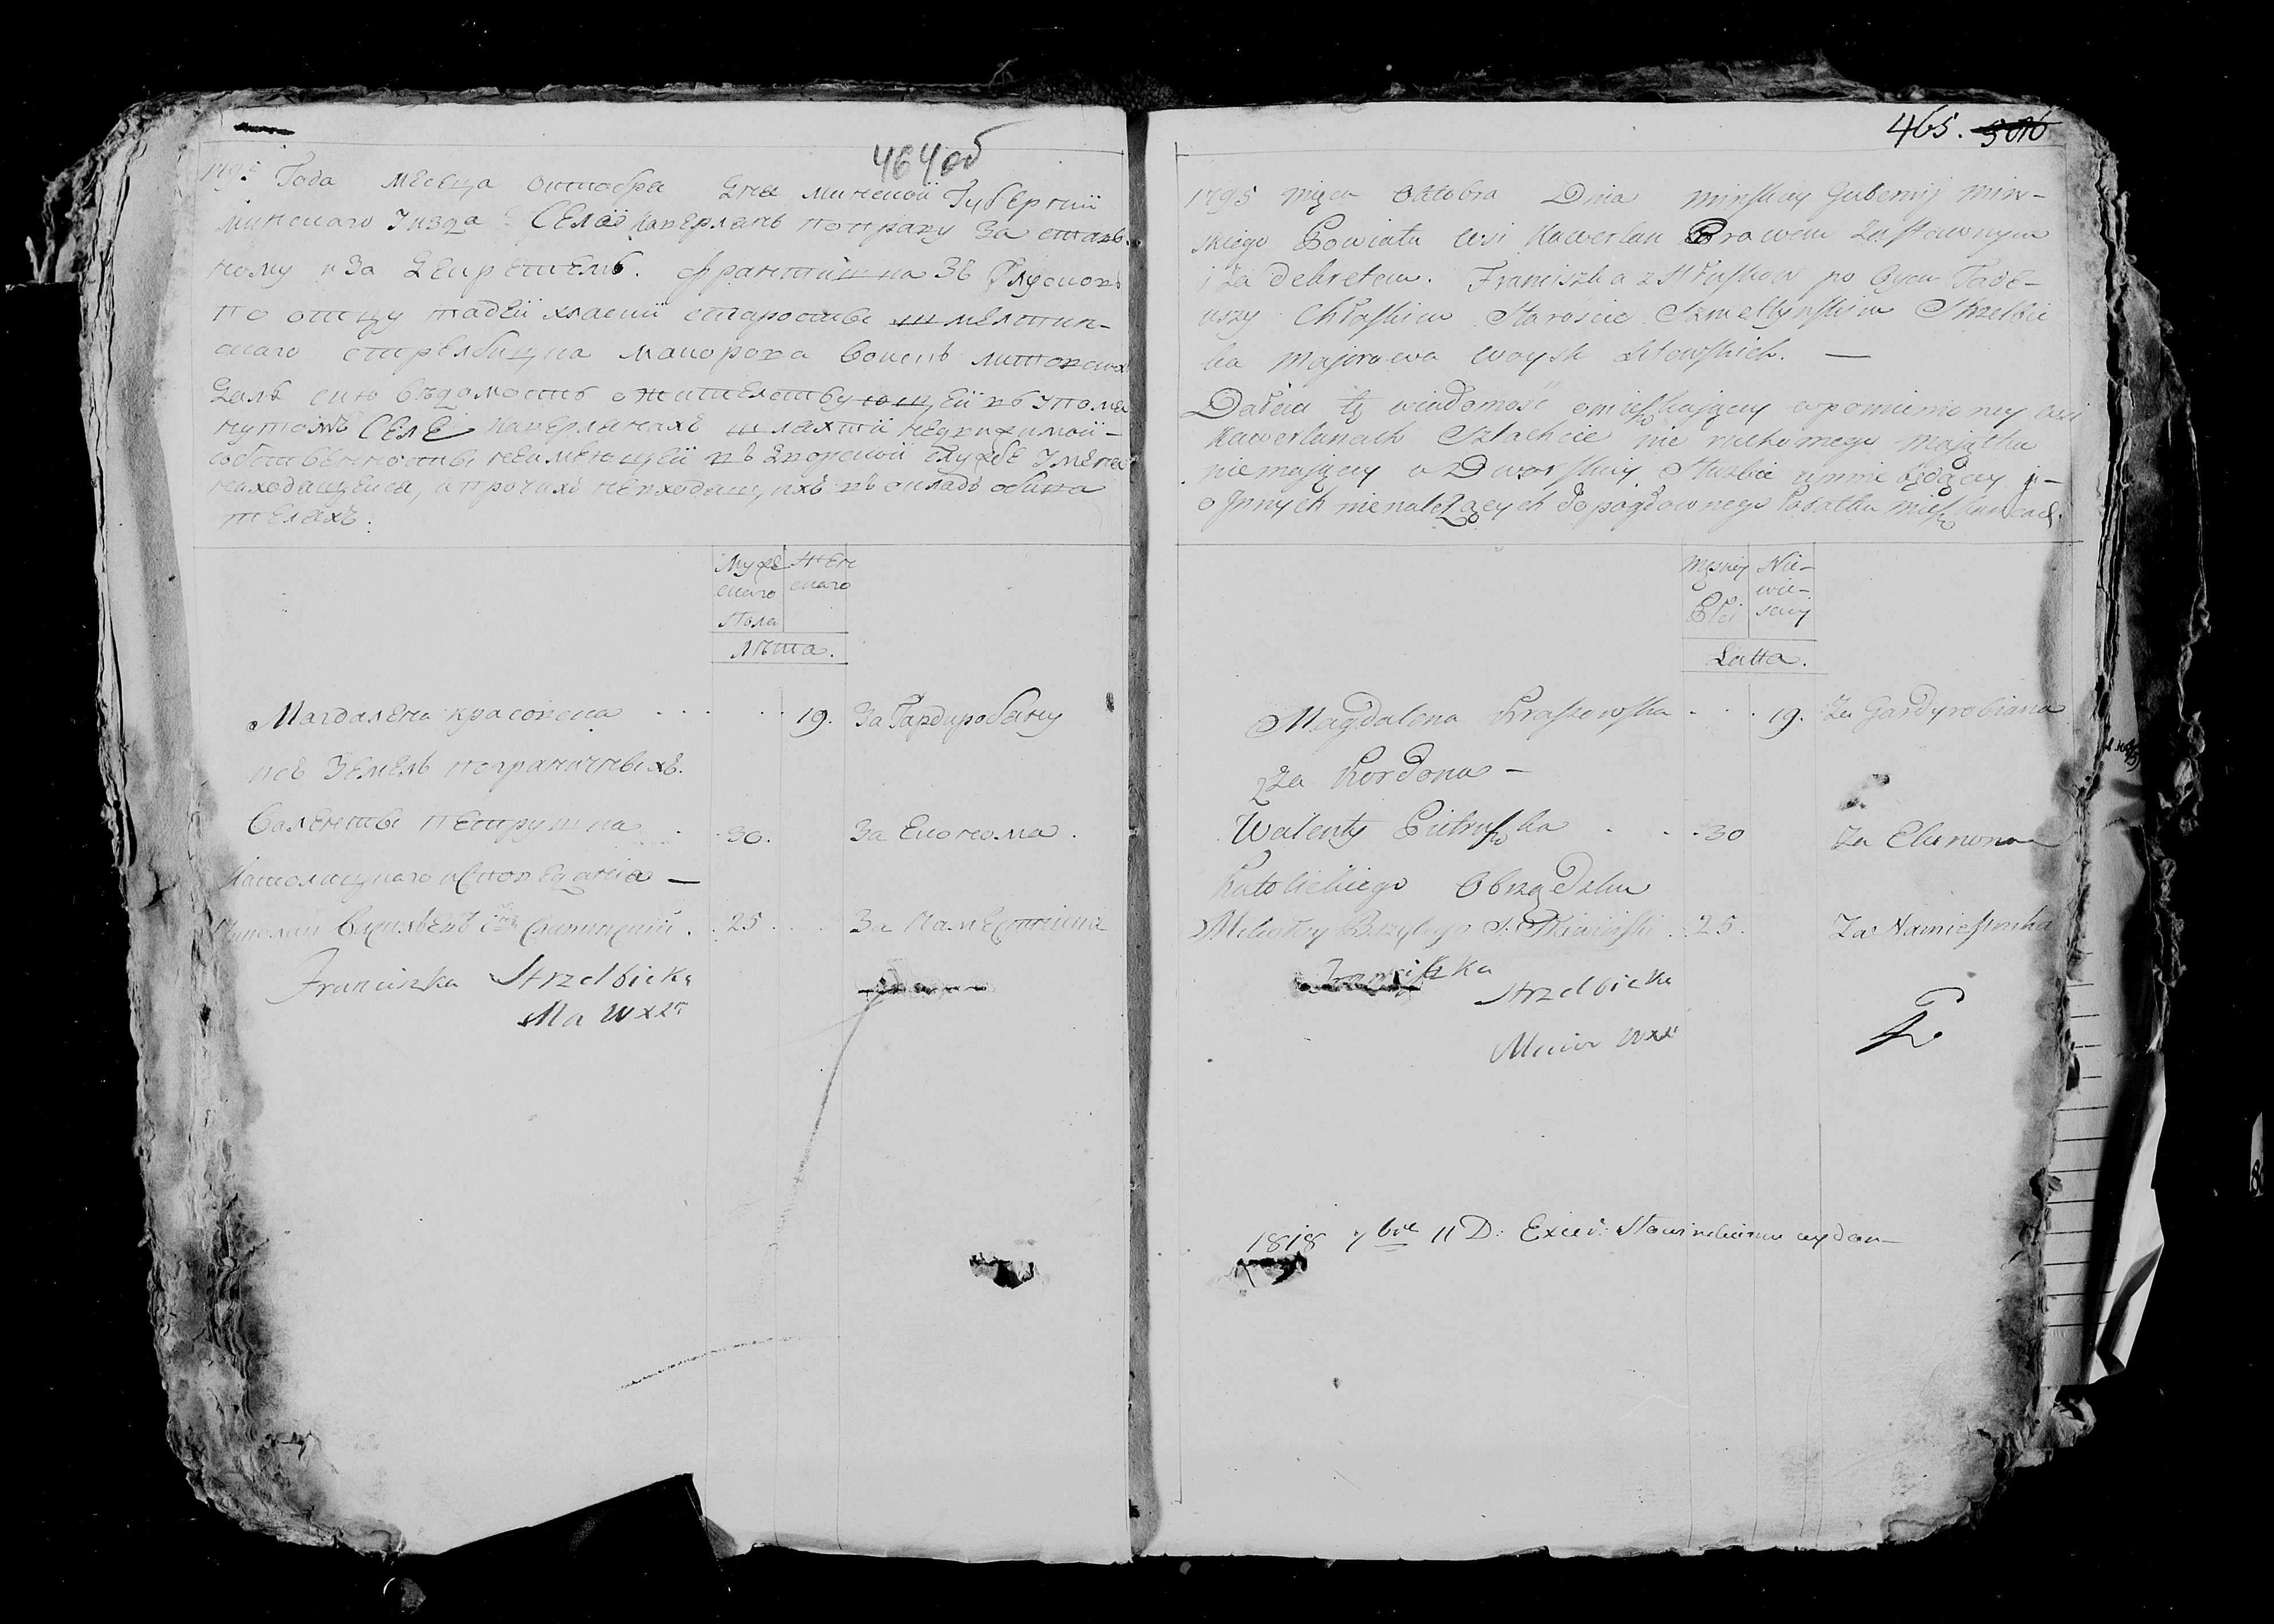 464 об
1795 Года месеца октобра Дня минской Губернїи
минскаго Уизда Селай Каверлянъ поправу За став-
ному и За Декретемъ. Франтишка Зъ
по отцу тадеи хласкїи старостве шмелтин-
скаго стрелбицка маиорова Воискъ литовских
Далъ сию ведомостъ о жителствующей въ упомя
нутомъ Селе Каверланахъ шляхти недвижимой-
собственносты неимеющей въ Дворской службе Умене
находящеися, а прочихъ невходящихъ въ окладъ обыва
телахъ.
Мужескаго Пола
Женскаго
Лѣта.
Магдалена красовска . . . . . 19. За Гардиробану
изъ Земель пограничныхъ.
Валенты петрушка . . 30. За Економа.
Католицкаго исповеданїа —
Николай Василъевъ сынъ . 25 . . За Намесника
Franciszka Strzelbicka
Ma WXLr
465. 506
1795 mięca Oktobra Dnia minskiey Gubernij min-
skiego Powiatu wsi Kawerlan Prawem Zastawnym
i Za dekretem. Franciszka z po Oycu Tade-
uszy Chłaskim Staroscie Szmeltynskim Strzelbic
ka Majorowa woysk Litewskich. —
Dałam tę wiadomość o mieszkaiącey wpomienioney wsi
Kawerlanach Szlachcie nie ruchomego Majątku
niemaiącey w Dworskiey Służbie umnie będącey i-
o Jnnych nienależących do pogłownego Podatku mieszkancach.
Męskiey Płci
Niewiesciey
Latta.
Magdalena Kraszowska . . . 19. Za Gardyrobiana
zZa Kordonu —
Walenty Pietruszka . . . 30 Za Ekonoma
Katolickiego Obrządku
Mikołay Bazylego S. . 25. Za Namiestnika
Franciszka
Strzelbicka
Maior WXLi
1818 7bra 11 D: Exced: wydan